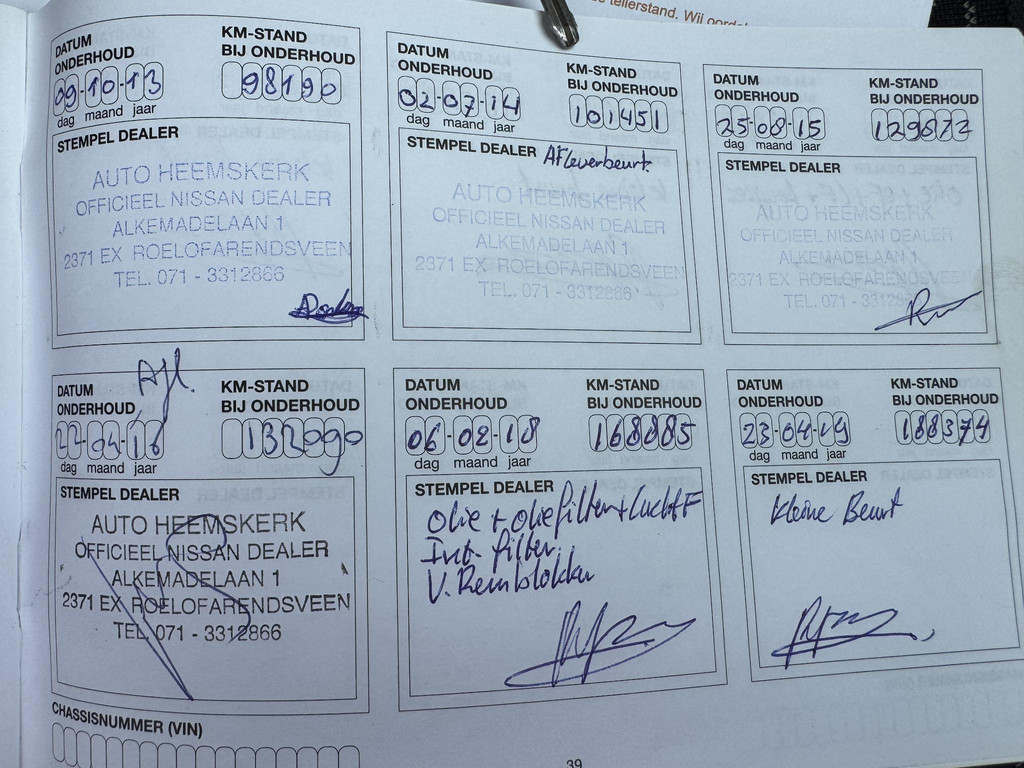 tellerstand. Wil
DATUM ONDERHOUD
KM-STAND BIJ ONDERHOUD
09-10-13
98190
dag maand jaar
STEMPEL DEALER
AUTO HEEMSKERK
OFFICIEEL NISSAN DEALER
ALKEMADELAAN 1
2371 EX ROELOFARENDSVEEN
TEL. 071 - 3312866
DATUM ONDERHOUD
KM-STAND BIJ ONDERHOUD
02-07-14
101451
dag maand jaar
STEMPEL DEALER Afleverbeurt
AUTO HEEMSKERK
OFFICIEEL NISSAN DEALER
ALKEMADELAAN 1
2371 EX ROELOFARENDSVEEN
TEL. 071 - 3312866
DATUM ONDERHOUD
KM-STAND BIJ ONDERHOUD
25-08-15
dag maand jaar
STEMPEL DEALER
AUTO HEEMSKERK
OFFICIEEL NISSAN DEALER
ALKEMADELAAN 1
2371 EX ROELOFARENDSVEE
TEL. 071 - 33128
Afl.
DATUM ONDERHOUD
KM-STAND BIJ ONDERHOUD
22-04-16
132090
dag maand jaar
STEMPEL DEALER
AUTO HEEMSKERK
OFFICIEEL NISSAN DEALER
ALKEMADELAAN 1
2371 EX ROELOFARENDSVEEN
TEL. 071 - 3312866
DATUM ONDERHOUD
KM-STAND BIJ ONDERHOUD
06-02-18
168885
dag maand jaar
STEMPEL DEALER
Olie + oliefilter + lucht F
Int. filter.
V. Remblokken
DATUM ONDERHOUD
KM-STAND BIJ ONDERHOUD
23-04-19
188374
dag maand jaar
STEMPEL DEALER
kleine Beurt
CHASSISNUMMER (VIN)
39